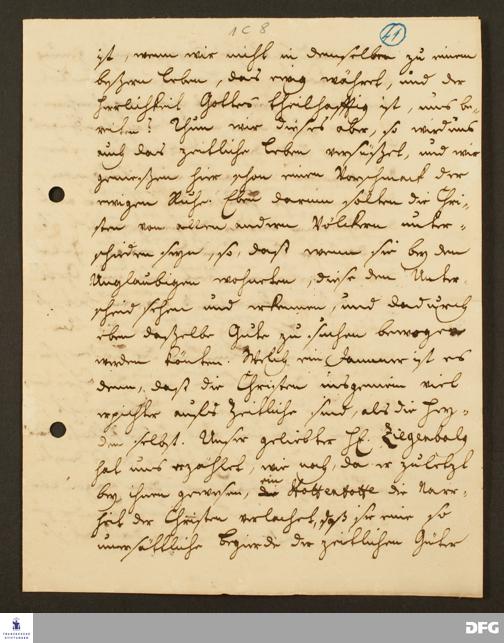 1 C 8
41
ist, wenn wir nicht in demselben zu einem
beßern Leben, das ewig währet, und der
Herlichkeit Gottes theilhafftig ist, uns be-
reiten? Thun wir dieses aber, so wird uns
auch das zeitliche Leben versüßet, und wir
genießen hier schon einen Vorschmack der
ewigen Ruhe. Eben darum solten die Chri-
sten von allen andern Völckern unter-
schieden seyn, so, daß wenn sie bey den
Unglaubigen wohneten, diese den Unter-
scheid sehen und erkennen, und dadurch
eben daßelbe Gute zu suchen bewogen
werden könten. Welch ein Jammer ist es
denn, daß die Christen insgemein viel
erpichter aufs Zeitliche sind, als die Hey-
den selbst. Unser geliebter H. Ziegenbalg
hat uns erzählet, wie noch, da er zuletzt
bey ihnen gewesen, ein Hottentotte die Narr-
heit der Christen verlachet, daß sie eine so
unersättliche begierde der zeitlichen Güter
FRANCKESCHE
STIFTUNGEN
DFG